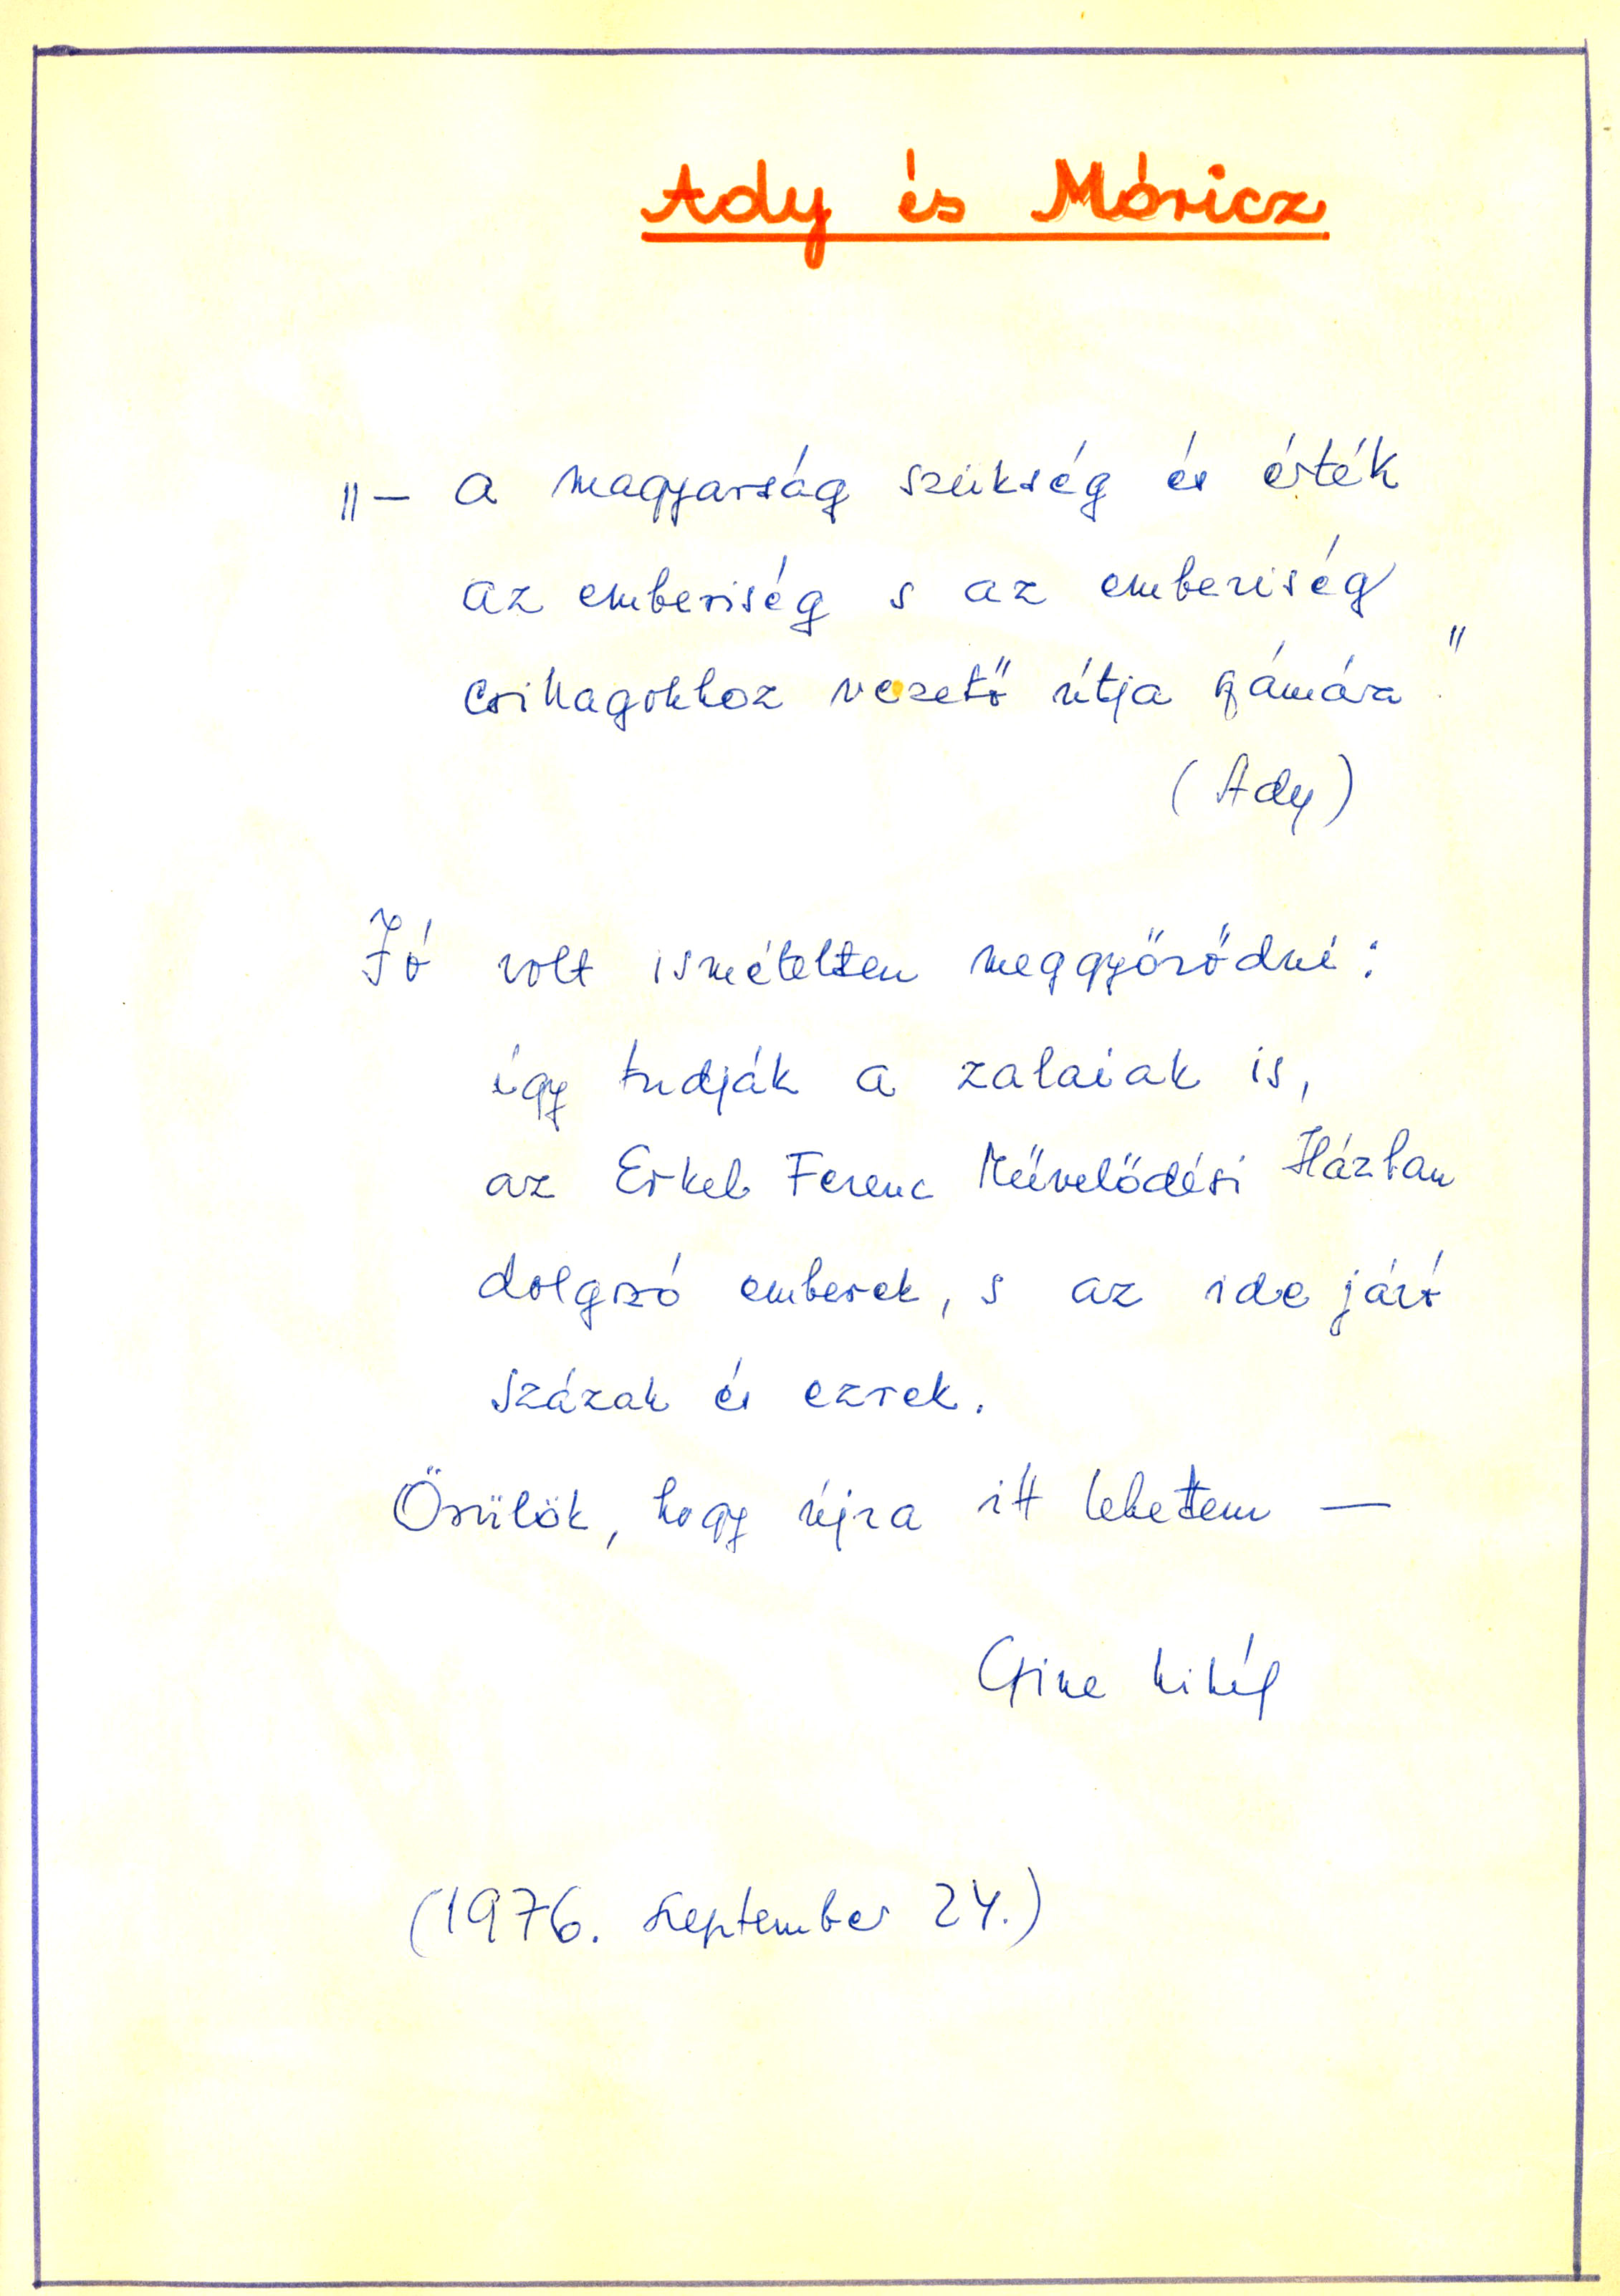 Ady és Móricz
„— a magyarság szükség és érték
az emberiség s az emberiség
csillagokhoz vezető útja számára."
(Ady)
Jó volt ismételten meggyőződni:
így tudják a zalaiak is,
az Erkel Ferenc Művelődési Házban
dolgozó emberek, s az ide járó
százak és ezrek.
Örülök, hogy újra itt lehettem —
Czine Mihály
(1976. szeptember 24.)